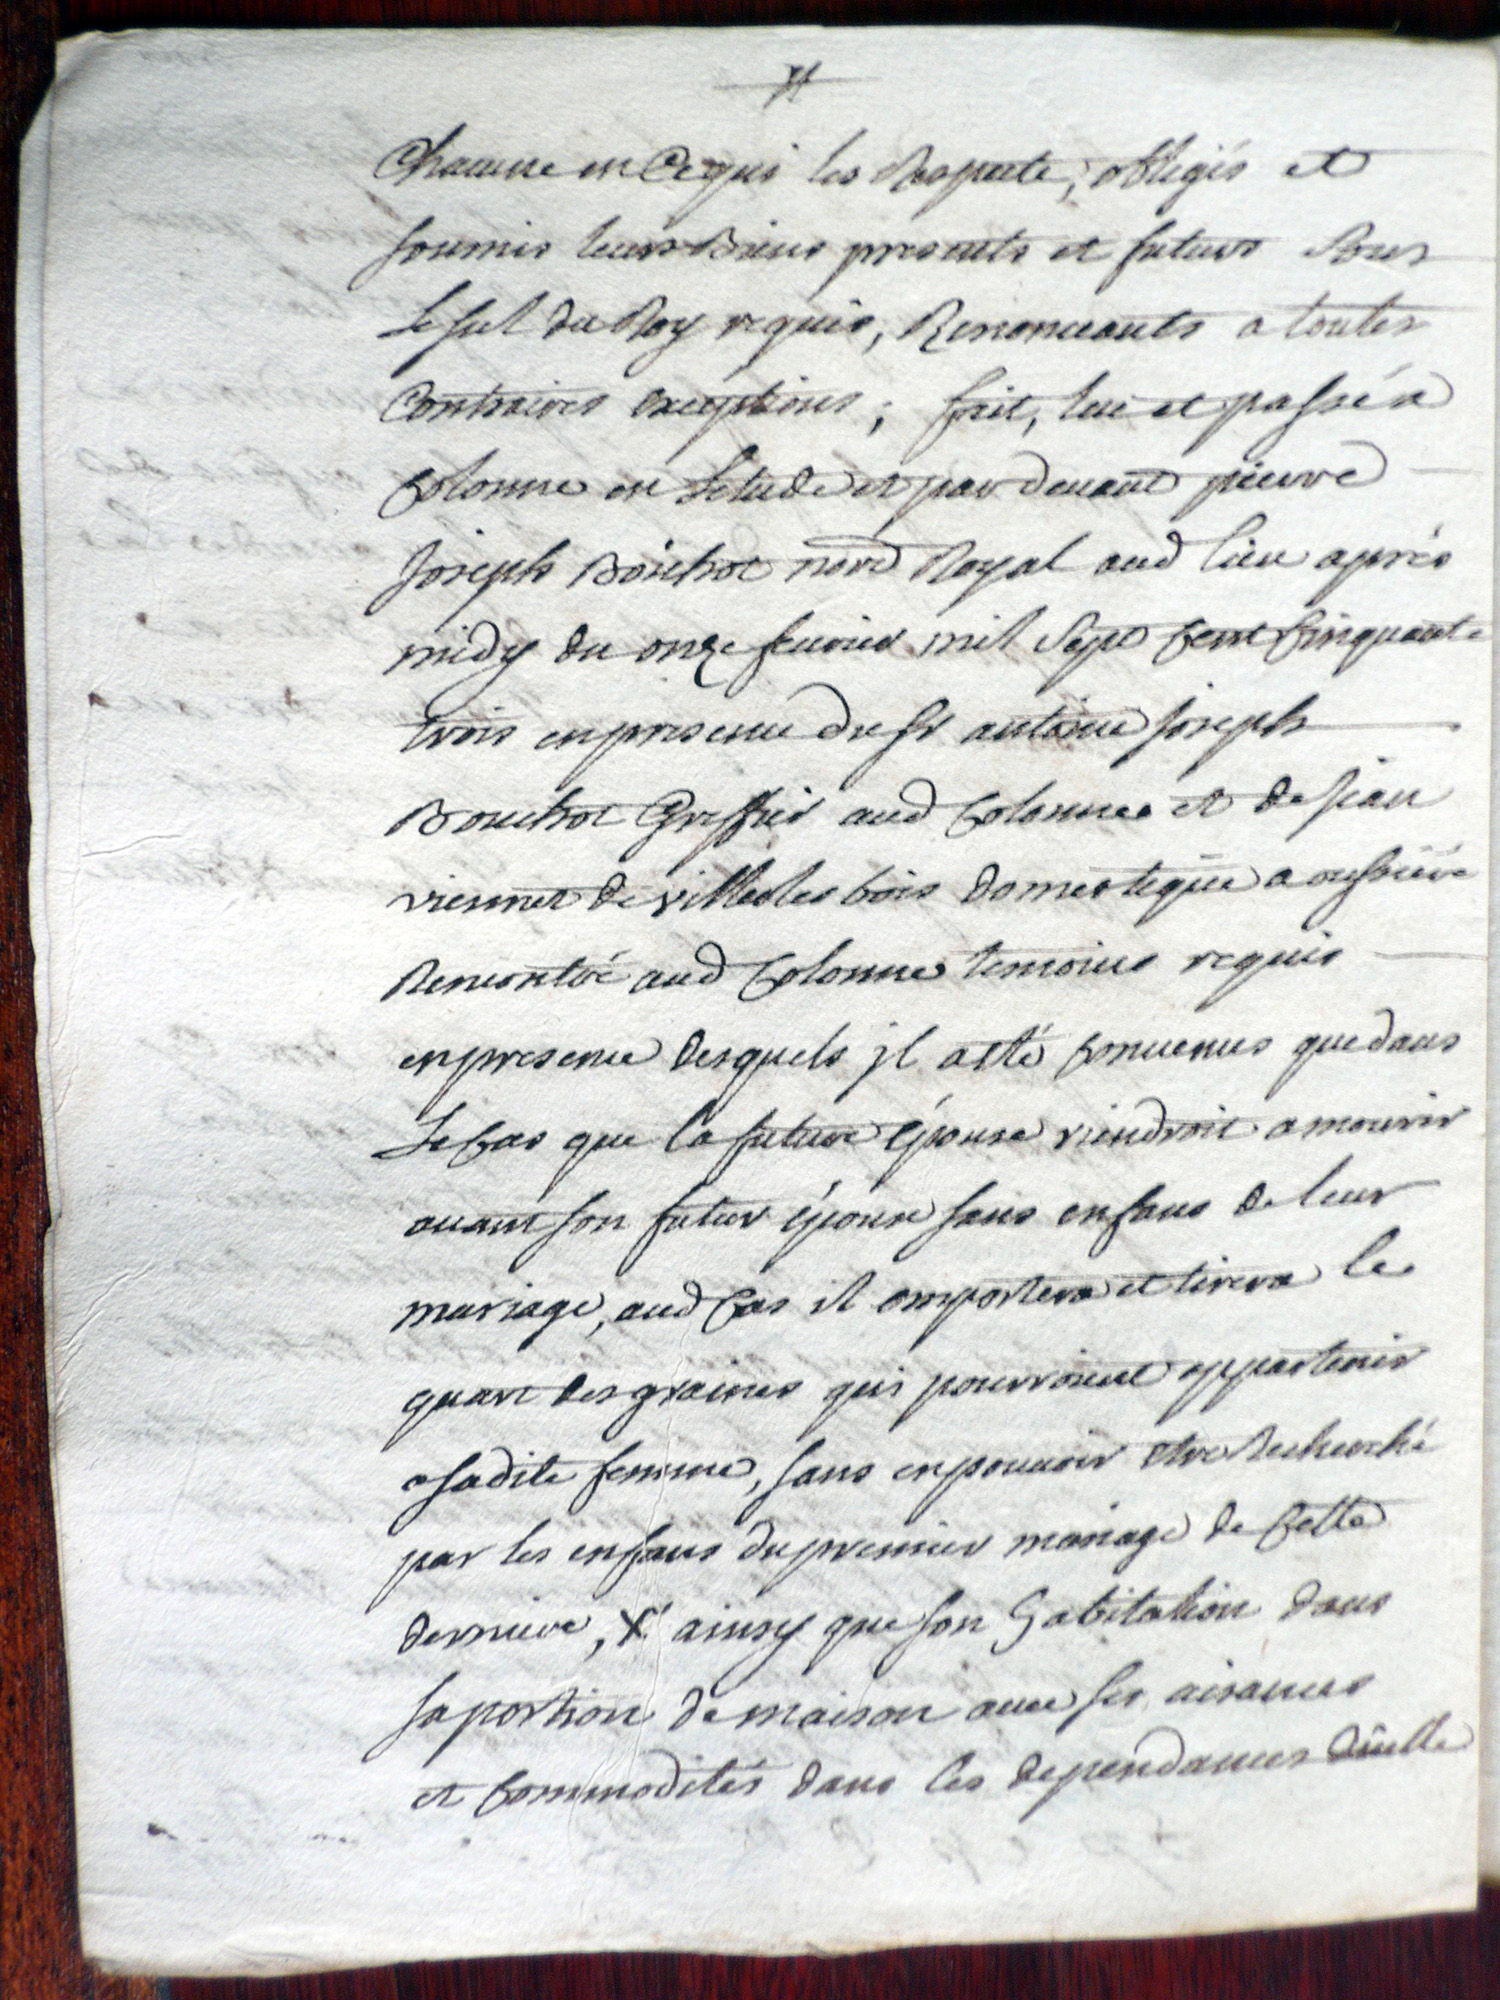 Chacune en Ce qui les Respecte, obligés et
soumis leurs Biens presents et futurs sous
le sel du Roy requis, Renonceants a toutes
Contraires exceptions; fait, lue et passé a
Colonne en Letude et par devant pierre
Joseph Bouchot nore Royal aud lieu apres
midy du onze fevrier mil Sept Cent Cinquante
trois en presence du sr antoine joseph
Bouchot Greffier aud Colonne et de jean
viennet de villedesbois domestique a oussiere
Rencontré aud Colonne temoins requis
en presence desquels jl a eté Convenus que dans
Le Cas que la future épouse viendroit a mourir
avant son futur époux sans enfans de leur
mariage, aud Cas il emportera et tirera le
quart des graines qui pourroient appartenir
a sadite femme, sans en pouvoir etre Recherché
par les enfans du premier mariage de Cette
derniere, X ainsy que son habitation dans
sa portion de maison avec ses aisances
et Commodités dans les dependances d'icelle